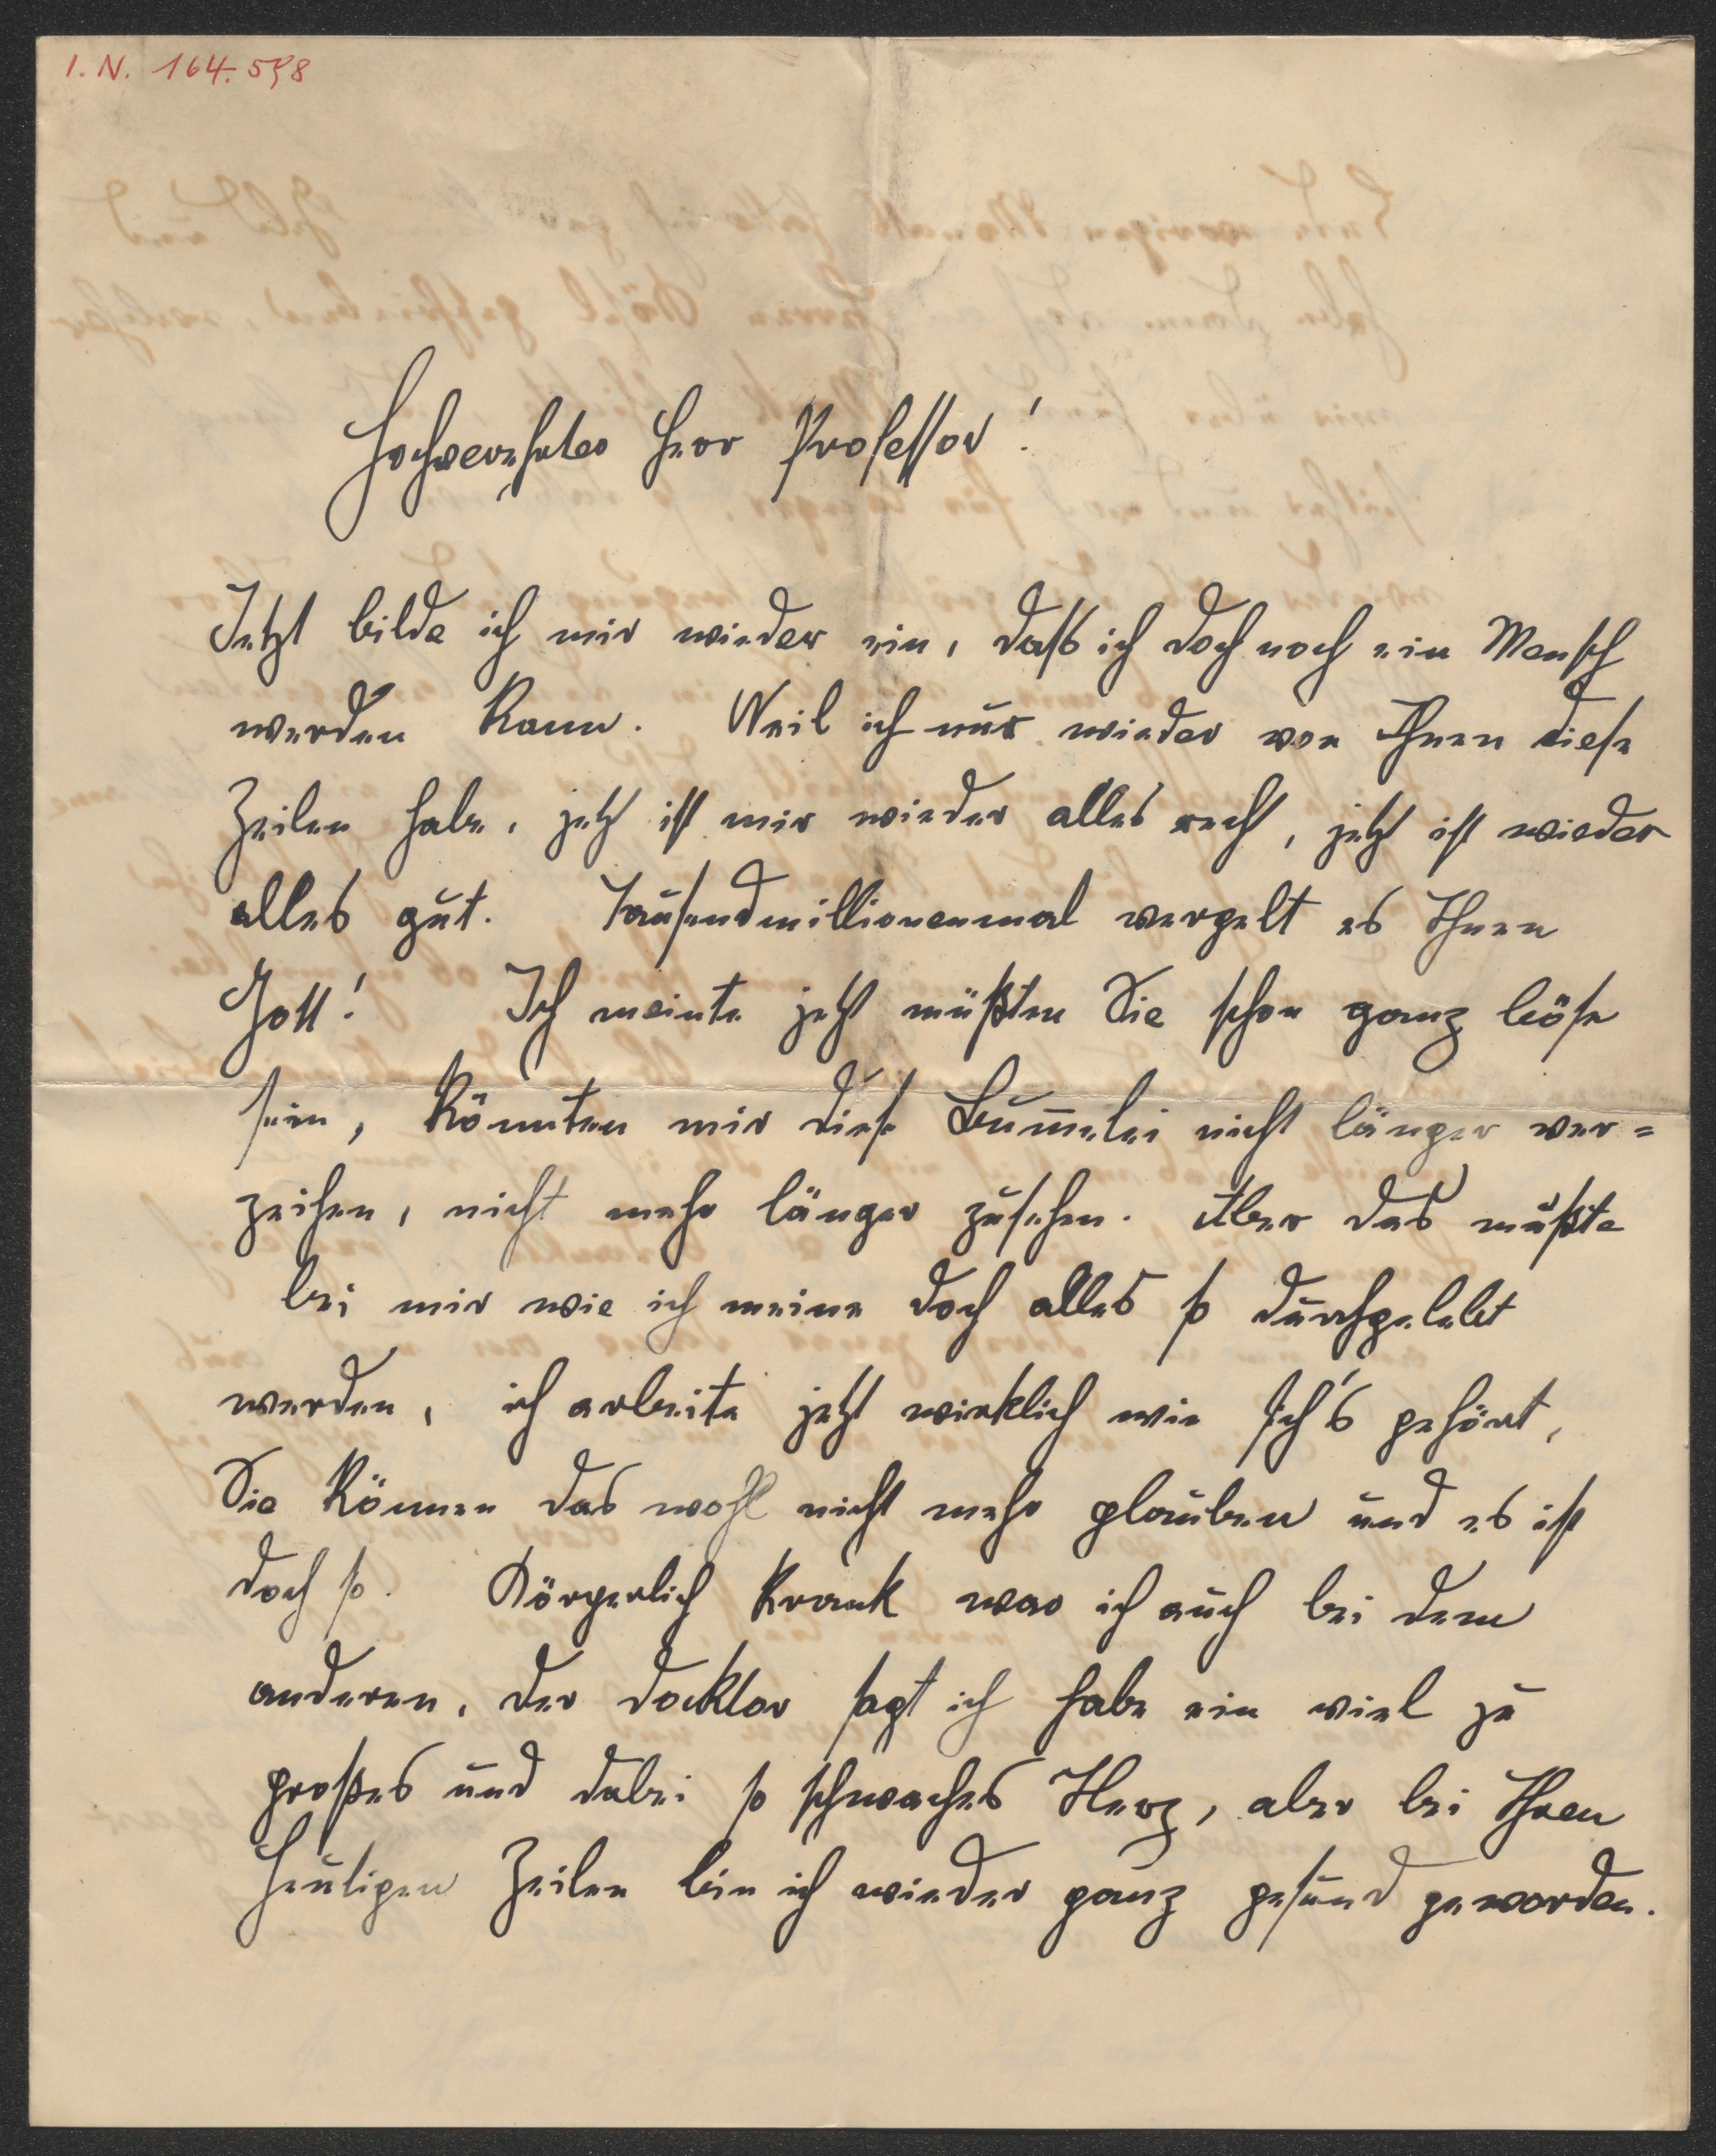 I. N. 164.598
Hochverehrter Herr Professor!
Jetzt bilde ich mir wieder ein, dass ich doch noch ein Mensch
werden kann. Weil ich nur wieder von Ihnen diese
Zeilen habe, jetz ist mir wieder alles recht, jetzt ist wieder
alles gut. Tausendmillionenmal vergelt es Ihnen
Gott! Ich meinte jetzt müßten Sie schon ganz böse
sein, könnten mir diese Bum̅elei nicht länger ver=
zeihen, nicht mehr länger zusehen. Aber das mußte
bei mir wie ich meine doch alles so durchgelebt
werden, ich arbeite jetzt wirklich wie sich's gehört,
Sie können das wohl nicht mehr glauben und es ist
doch so. Körperlich krank war ich auch bei dem
anderen, der docktor sagt ich habe ein viel zu
großes und dabei so schwaches Herz, aber bei Ihren
heutigen Zeilen bin ich wieder ganz gesund geworden.